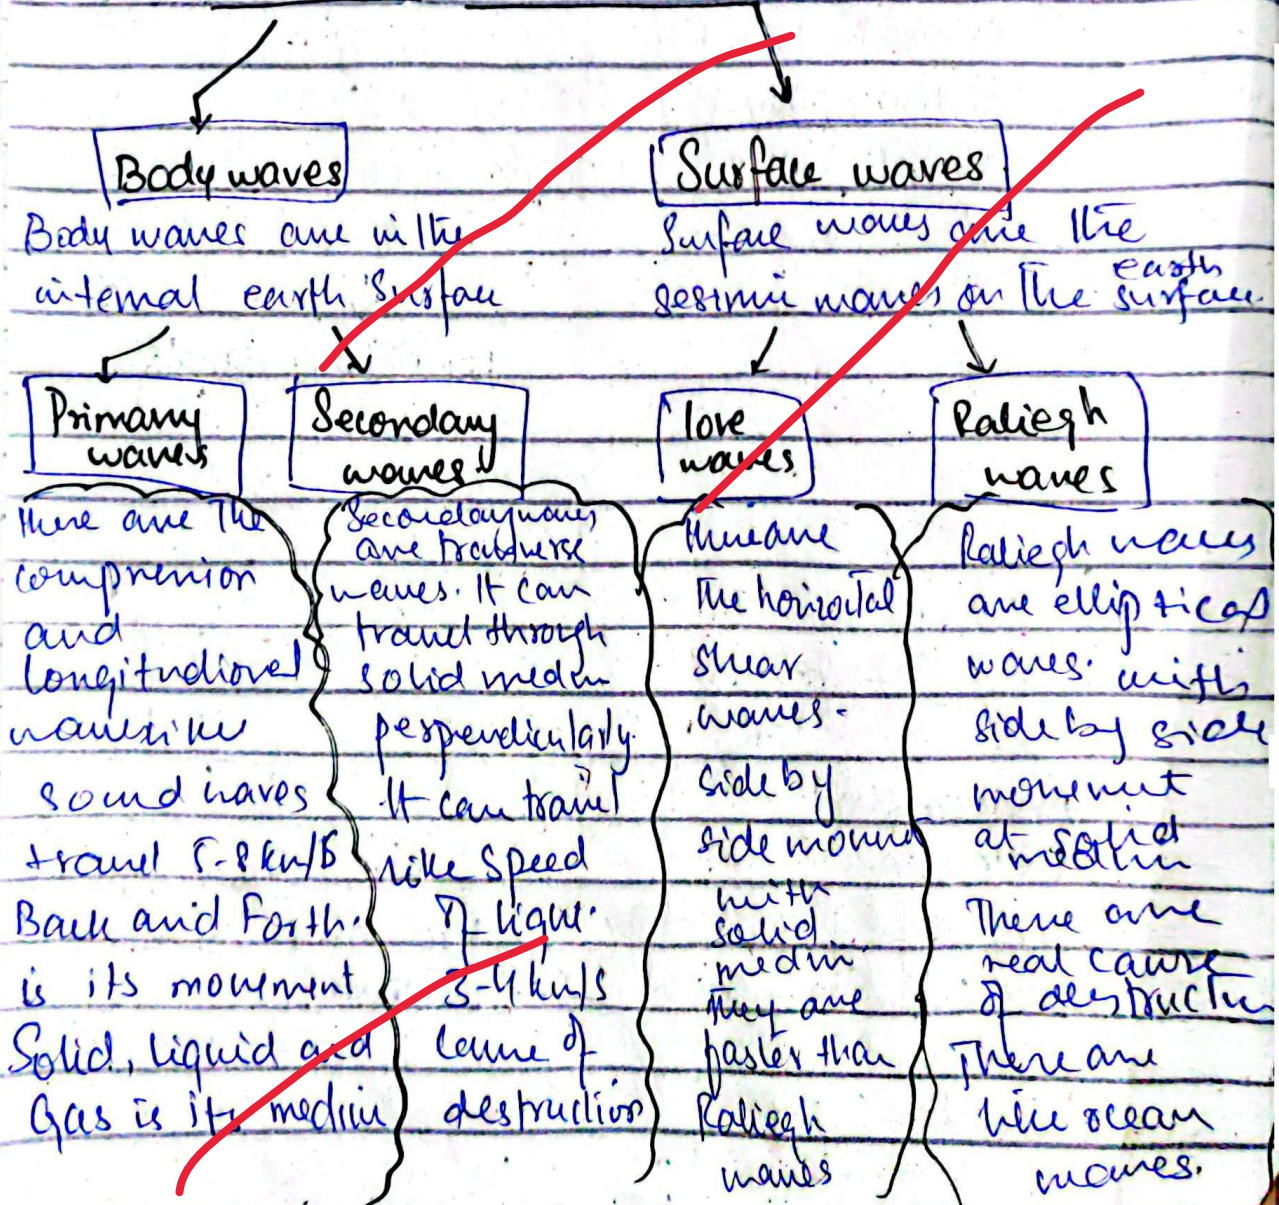 Body waves
Surface waves
Body waves are in the
internal earth Surface
Surface waves are the
sesimic waves on the earth
surface.
Primary
waves
Secondary
waves
love
waves
Raliegh
waves
There are the
compression
and
longitudional
wave like
sound waves
travel 5-8 km/s
Back and Forth.
is its movement
Solid, liquid and
Gas is its medium
Secondary waves
are transverse
waves. It can
travel through
solid medium
perpendicularly.
It can travel
like speed
of light.
3-4 km/s
cause of
destruction
There are
The horizontal
shear
waves.
side by
side movment
with
solid
medium
They are
faster than
Raliegh
waves
Raliegh waves
are elliptical
waves. with
side by side
movement
at solid
medium
There are
real cause
of destruction
There are
like ocean
waves.